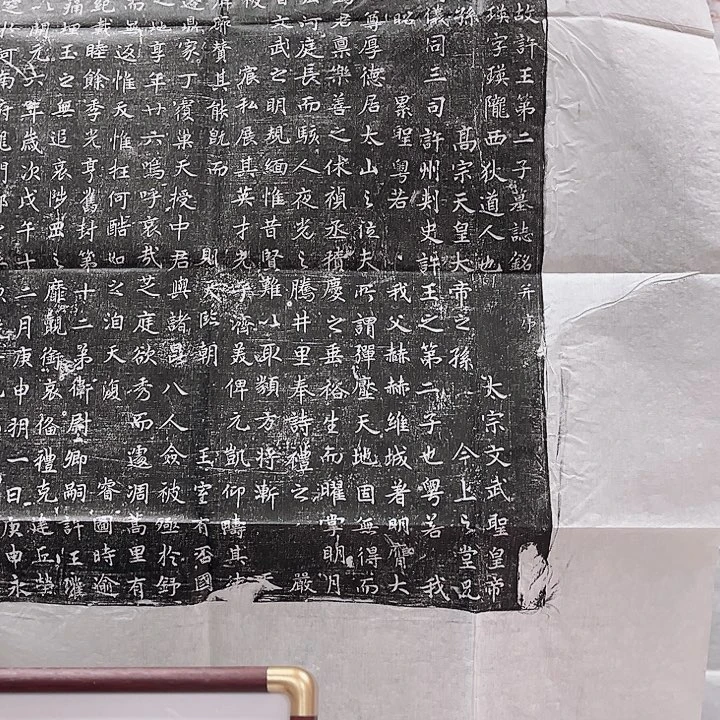 故許王第二子墓誌銘并序
瑛字瑛隴西狄道人也 太宗文武聖皇帝
孫 高宗天皇大帝之孫 今上之堂兄
儀同三司許州刾史許王之第二子也粵若 我
昭 累聖粤若 我父赫赫維城著明齊大
尊厚德居太山之位夫所謂彈壓天地固無得而
君稟樂善之休禎丞積慶之垂裕生而曜掌明月
河庭長而駭人夜光之騰井里奉詩禮之 嚴
文武之明規緬惟昔賢難以取類方將漸
宸私展其英才光乎濟美俾元凱仰疇其
贊其能既而 則天臨朝 王室有否國
鼎家丁覆巢天授中君與諸昆八人僉被殛於
地享年廿六嗚呼哀哉芝庭欲秀而遽凋蒿里有
返惟反惟枉何酷如之洎天復 睿圖時逾
紀載睦餘季光亨舊封第十二弟衛尉卿嗣許王瓘
痛埋玉之無追哀陟之靡覯銜哀備禮克建丘塋
以開元六年歲次戊午十二月庚申朔一日庚申永
河南府龍門鄉